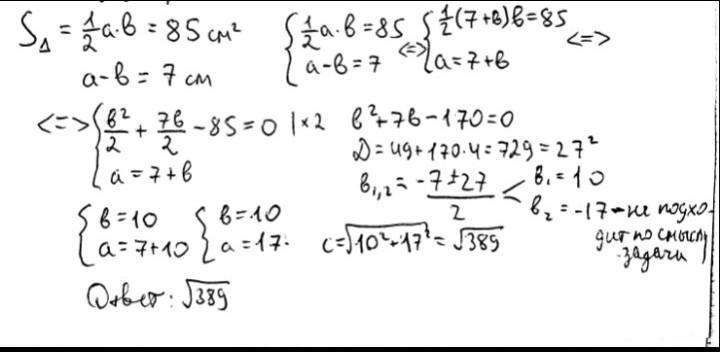 S△ = 1/2 a·b = 85 см²
a-b = 7 см
{ 1/2 a·b = 85
a-b = 7
<=> { 1/2 (7+b)b = 85
a = 7+b
<=>
<=> { b²/2 + 7b/2 - 85 = 0 | ×2
a = 7+b
b²+7b-170=0
D = 49+170·4 = 729 = 27²
b₁,₂ = (-7±27)/2
b₁ = 10
b₂ = -17 - не подхо-
дит по смыслу
задачи
{ b=10
a = 7+10
{ b=10
a = 17.
c = √(10²+17²) = √389
Ответ: √389